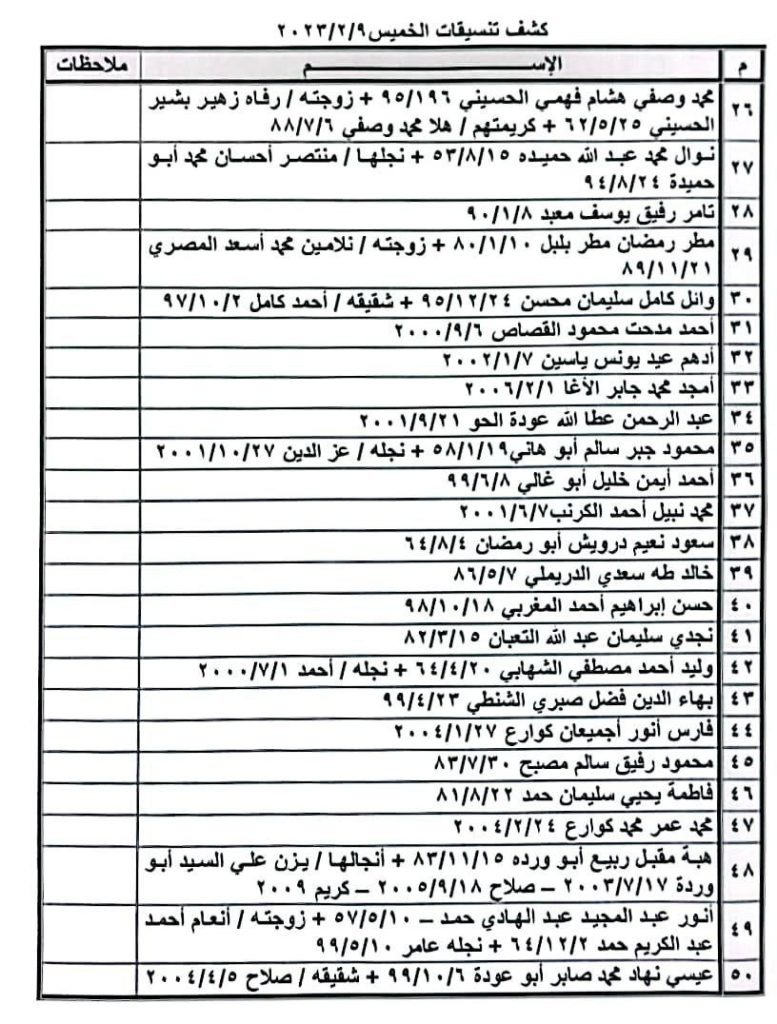 كشف تنسيقات الخميس ٢٠٢٣/٢/٩
م الإســـــــــم ملاحظات
٢٦ محمد وصفي هشام فهمي الحسيني ٩٥/١٩٦ + زوجته / رفاه زهير بشير
الحسيني ٦٢/٥/٢٥ + كريمتهم / هلا محمد وصفي ٨٨/٧/٦
٢٧ نوال محمد عبد الله حميده ٥٣/٨/١٥ + نجلها / منتصر أحسان محمد أبو
حميدة ٩٤/٨/٢٤
٢٨ تامر رفيق يوسف معبد ٩٠/١/٨
٢٩ مطر رمضان مطر بلبل ٨٠/١/١٠ + زوجته / نلامين محمد أسعد المصري
٨٩/١١/٢١
٣٠ وائل كامل سليمان محسن ٩٥/١٢/٢٤ + شقيقه / أحمد كامل ٩٧/١٠/٢
٣١ أحمد مدحت محمود القصاص ٢٠٠٠/٩/٦
٣٢ أدهم عيد يونس ياسين ٢٠٠٢/١/٧
٣٣ أمجد محمد جابر الأغا ٢٠٠٦/٢/١
٣٤ عبد الرحمن عطا الله عودة الحو ٢٠٠١/٩/٢١
٣٥ محمود جبر سالم أبو هاني ٥٨/١/١٩ + نجله / عز الدين ٢٠٠١/١٠/٢٧
٣٦ أحمد أيمن خليل أبو غالي ٩٩/٦/٨
٣٧ محمد نبيل أحمد الكرنب ٢٠٠١/٦/٧
٣٨ سعود نعيم درويش أبو رمضان ٦٤/٨/٤
٣٩ خالد طه سعدي الدريملي ٨٦/٥/٧
٤٠ حسن إبراهيم أحمد المغربي ٩٨/١٠/١٨
٤١ نجدي سليمان عبد الله التعبان ٨٢/٣/١٥
٤٢ وليد أحمد مصطفي الشهابي ٦٤/٤/٢٠ + نجله / أحمد ٢٠٠٠/٧/١
٤٣ بهاء الدين فضل صبري الشنطي ٩٩/٤/٢٣
٤٤ فارس أنور أجميعان كوارع ٢٠٠٤/١/٢٧
٤٥ محمود رفيق سالم مصبح ٨٣/٧/٣٠
٤٦ فاطمة يحيي سليمان حمد ٨١/٨/٢٢
٤٧ محمد عمر محمد كوارع ٢٠٠٤/٢/٢٤
٤٨ هبة مقبل ربيع أبو ورده ٨٣/١١/١٥ + أنجالها / يزن علي السيد أبو
وردة ٢٠٠٣/٧/١٧ – صلاح ٢٠٠٥/٩/١٨ – كريم ٢٠٠٩
٤٩ أنور عبد المجيد عبد الهادي حمد – ٥٧/٥/١٠ + زوجته / أنعام أحمد
عبد الكريم حمد ٦٤/١٢/٢ + نجله عامر ٩٩/٥/١٠
٥٠ عيسي نهاد محمد صابر أبو عودة ٩٩/١٠/٦ + شقيقه / صلاح ٢٠٠٤/٤/٥